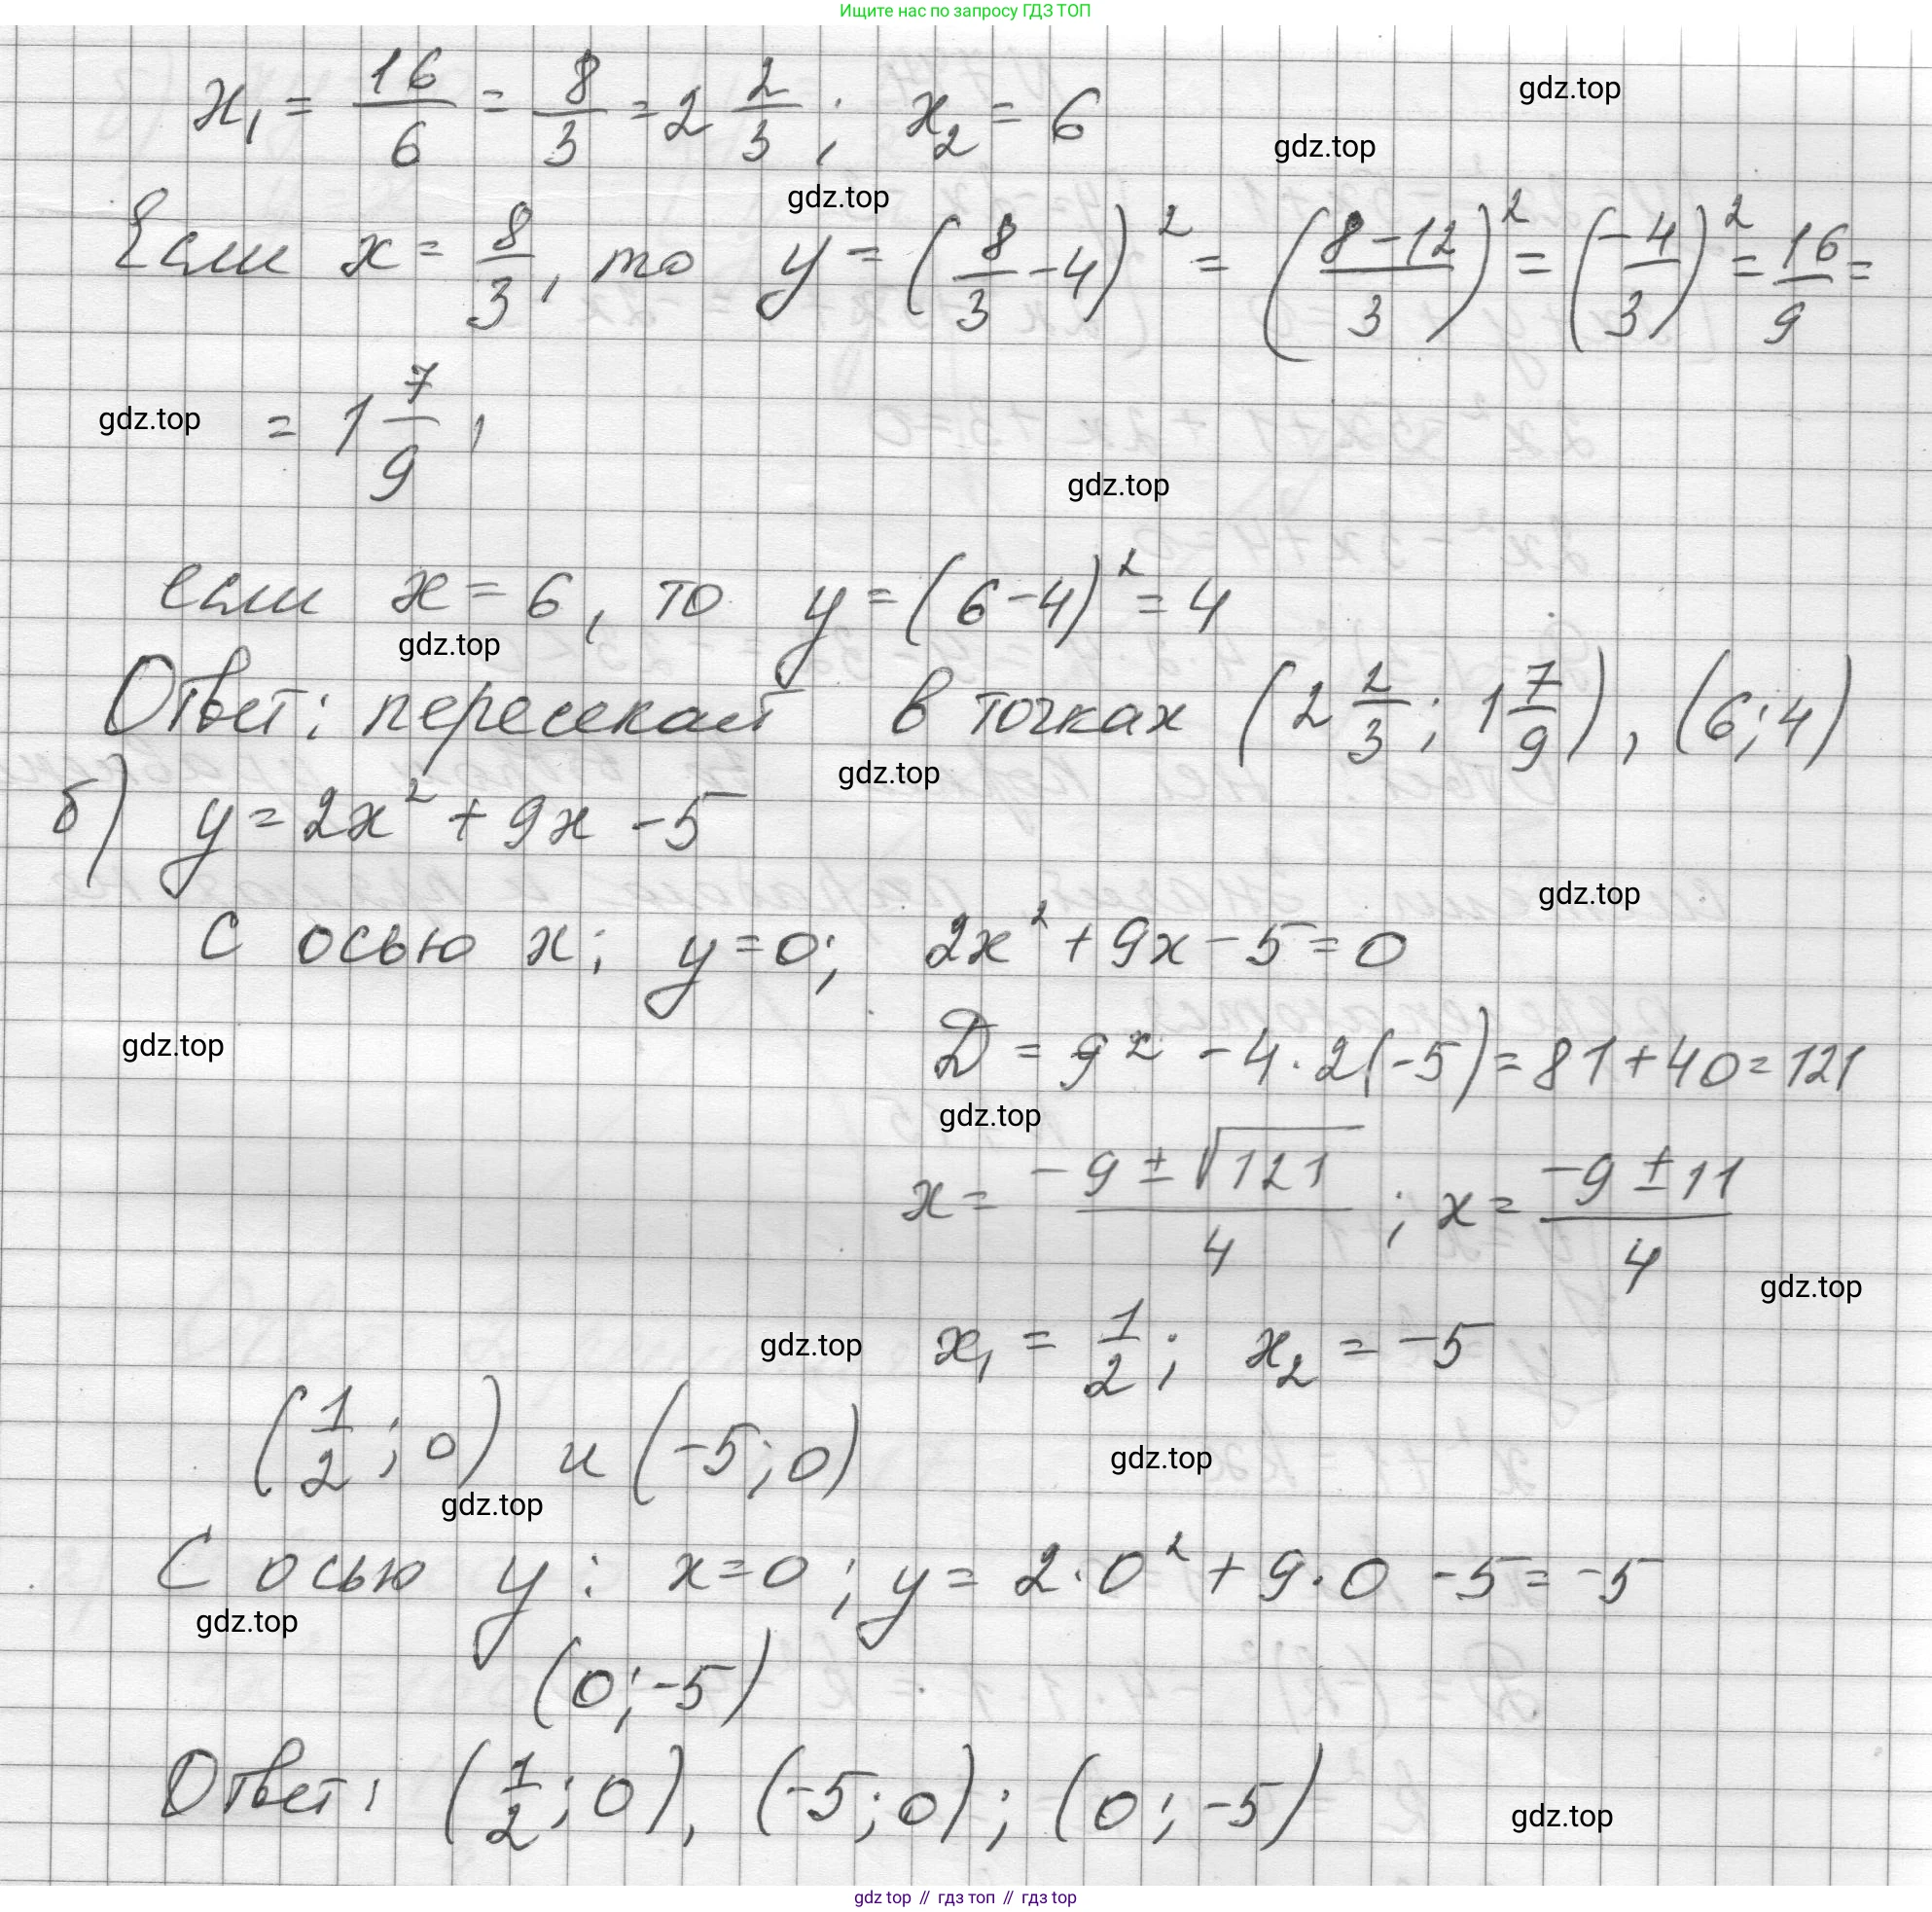 Ищите нас по запросу ГДЗ ТОП
x₁ = 16/6 = 8/3 = 2 2/3; x₂ = 6
gdz.top
gdz.top
gdz.top
Если x = 8/3, то y = (8/3 - 4)² = ((8-12)/3)² = (-4/3)² = 16/9 =
= 1 7/9,
gdz.top
gdz.top
если x = 6, то y = (6-4)² = 4
gdz.top
Ответ: пересекает в точках (2 2/3; 1 7/9), (6; 4)
gdz.top
б) y = 2x² + 9x - 5
gdz.top
С осью x; y = 0; 2x² + 9x - 5 = 0
gdz.top
D = 9² - 4·2(-5) = 81 + 40 = 121
gdz.top
x = (-9 ± √121)/4; x = (-9 ± 11)/4
gdz.top
gdz.top
x₁ = 1/2; x₂ = -5
(1/2; 0) и (-5; 0)
gdz.top
gdz.top
С осью y: x = 0; y = 2·0² + 9·0 - 5 = -5
gdz.top
(0; -5)
Ответ: (1/2; 0), (-5; 0); (0; -5)
gdz.top
gdz top // гдз топ // гдз top